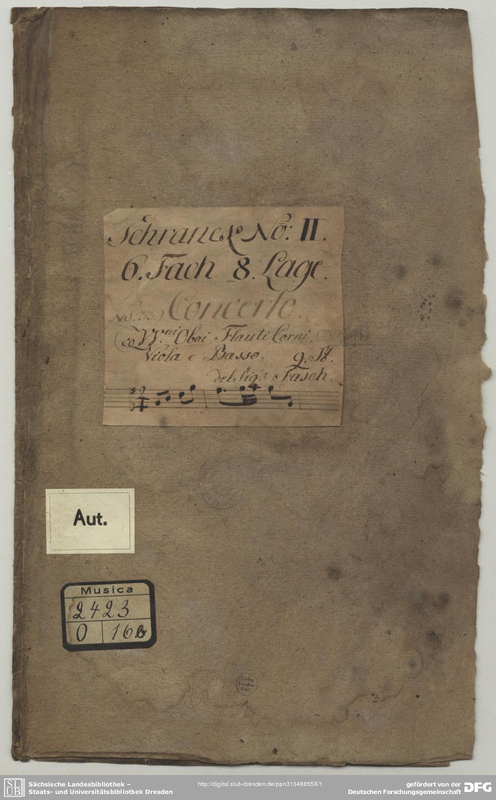 Schranck No: II.
6. Fach 8. Lage.
Concerto.
co VV.ni Oboi Flauti Corni
Viola e Basso. 9. St.
del Sig.r Fasch.
Aut.
Musica
2423
O 16b
Sächsische Landesbibliothek –
Staats- und Universitätsbibliothek Dresden
http://digital.slub-dresden.de/ppn31348855X/1
gefördert von der
Deutschen Forschungsgemeinschaft DFG